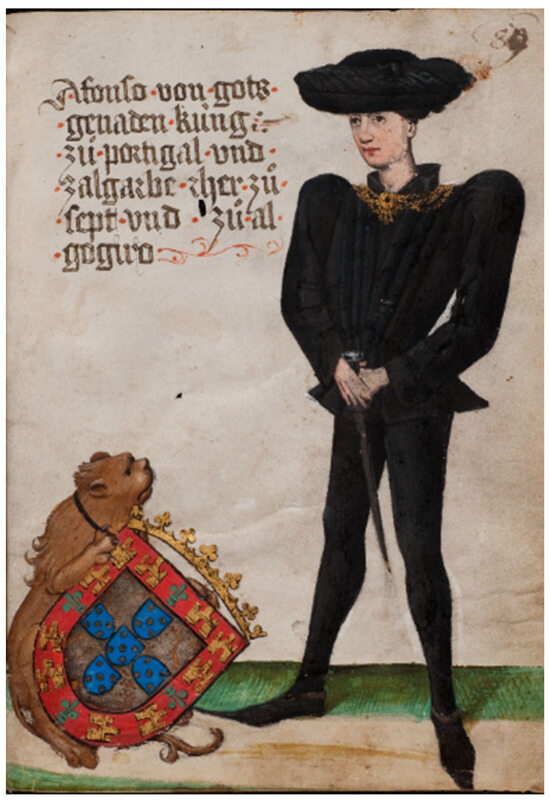 Afonso · von · gots ·
· genaden · küng :~
· zü · portigal · vnd ·
· zalgarbe · rher · zü ·
· sept · vnd · zü · al
· gogiro ·